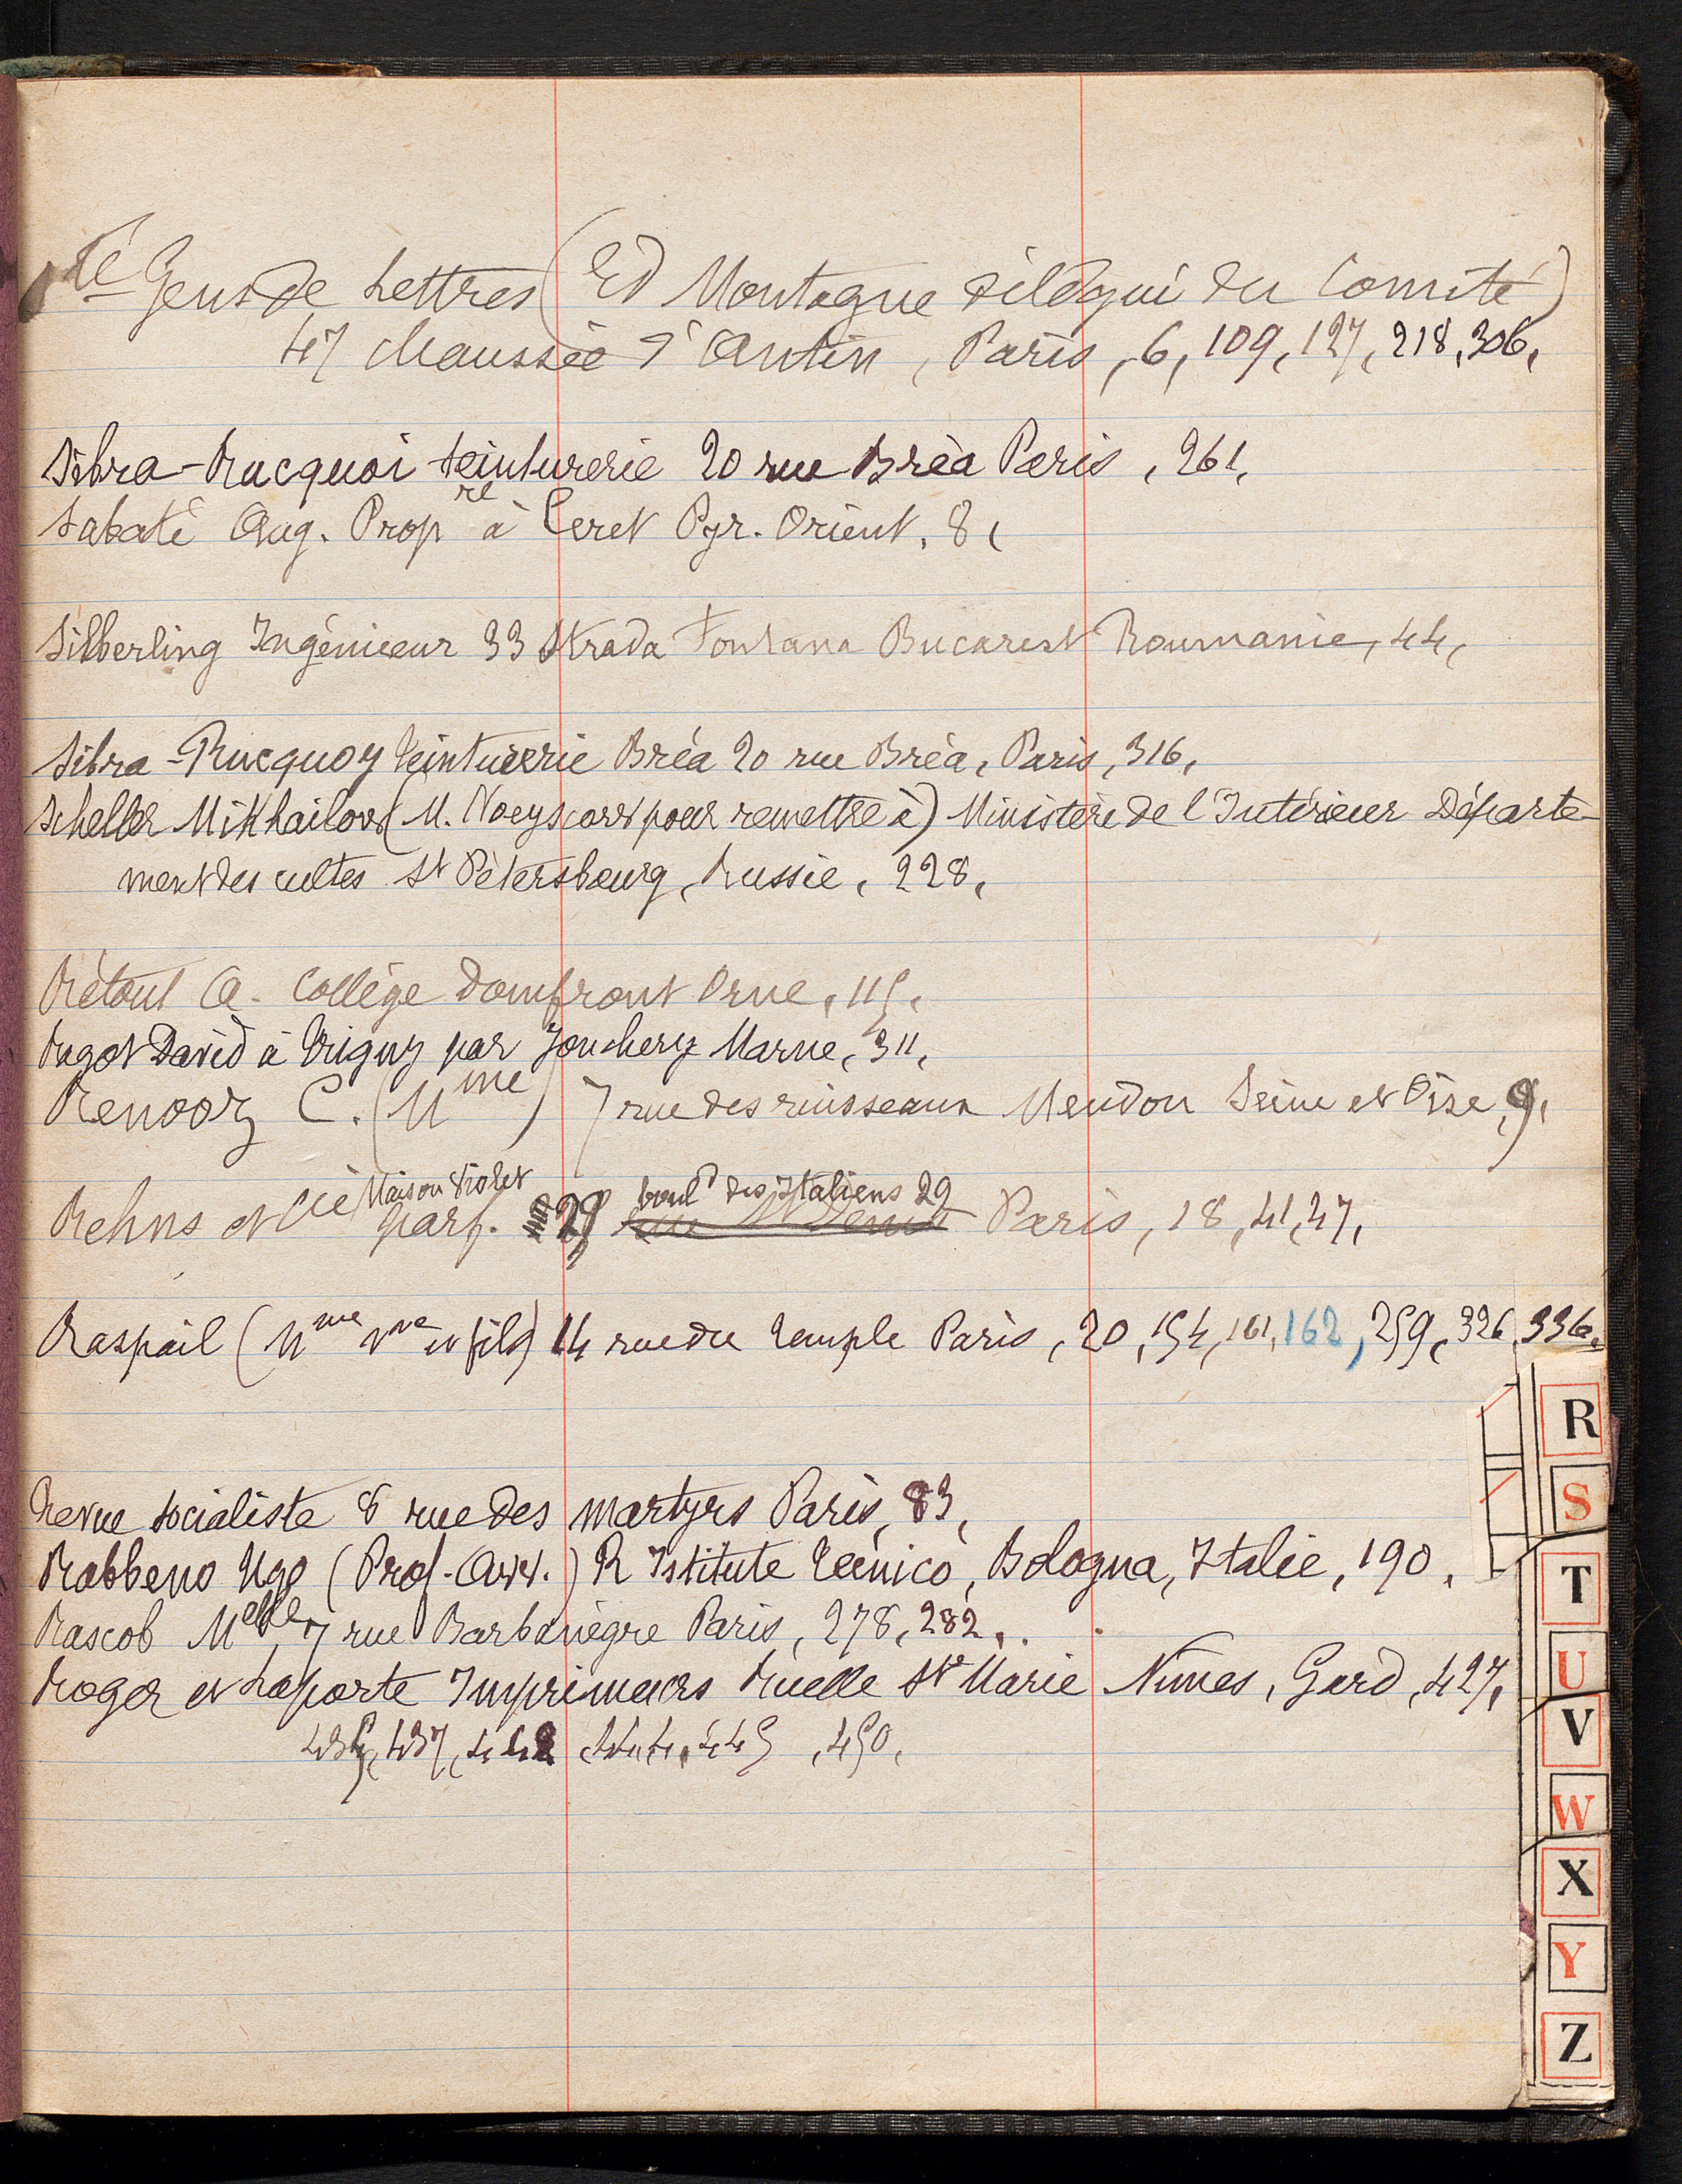 Sté Gens de Lettres (Ed Montagne délégué du Comité)
47 Chaussée d'Antin, Paris, 6, 109, 127, 218, 306,
Sibra-Rucquoi teinturerie 20 rue Bréa Paris, 261,
Sabaté Aug. Propre à Ceret Pyr. Orient. 8,
Silberling Ingénieur 33 Strada Fontana Bucarest Roumanie, 44,
Sibra-Rucquoy teinturerie Bréa 20 rue Bréa, Paris, 316,
Scheller Mikhailow (M. pour remettre à) Ministère de l'Intérieur Départe-
ment des cultes St Pétersbourg, Russie, 228,
Rétout A. Collège Domfront Orne, 115,
Ragot David à Trigny par Jonchery Marne, 311,
Renooz C. (Mme) 7 rue des ruisseaux Meudon Seine et Oise, 9,
Maison Violet bould des Italiens 29
Rehns et Cie parf. 29 rue St Denis Paris, 18, 41, 47,
Raspail (Mme Vve et fils) 14 rue du Temple Paris, 20, 154, 161, 162, 259, 326, 336,
Revue socialiste 8 rue des martyrs Paris, 83,
Rabbeno Ugo (Prof. Avv.) R Istitute Tecnico, Bologna, Italie, 190,
Rascob Melle, 7 rue Barbanègre Paris, 278, 282,
Roger et Laporte Imprimeurs Ruelle Ste Marie Nimes, Gard, 427,
437, 442, 444, 445, 450,
R
S
T
U
V
W
X
Y
Z